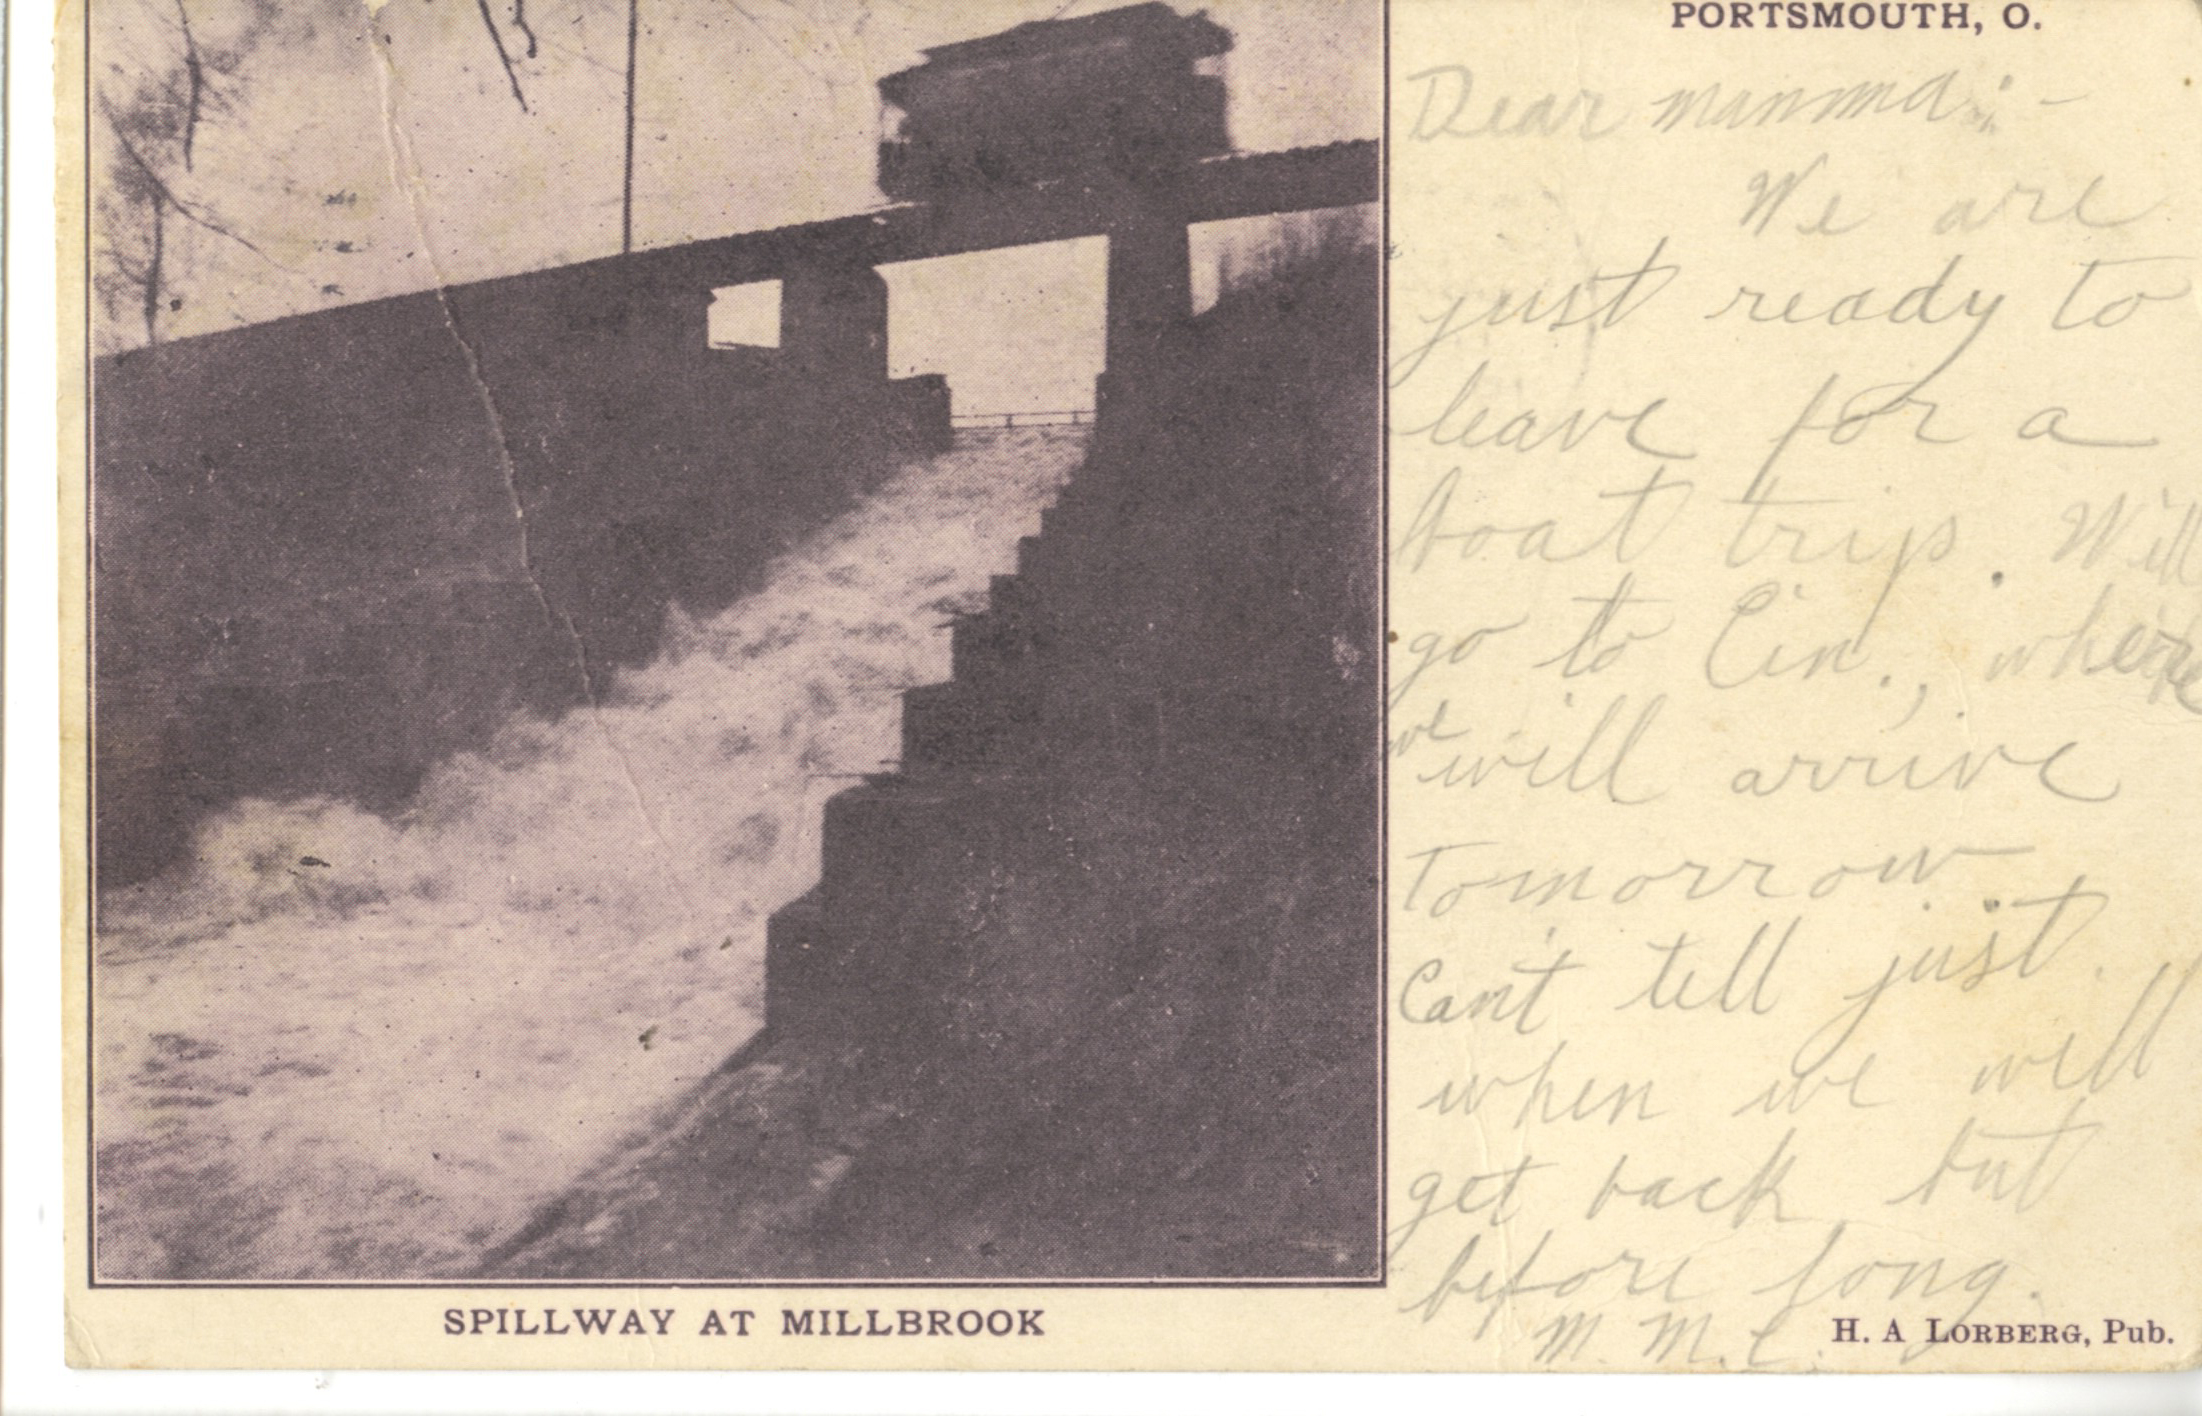 PORTSMOUTH, O.
Dear mamma:-
We are
just ready to
leave for a
boat trip. Will
go to Cin., where
we will arrive
tomorrow.
Can't tell just
when we will
get back but
before long.
M. M. C.
SPILLWAY AT MILLBROOK
H. A LORBERG, Pub.